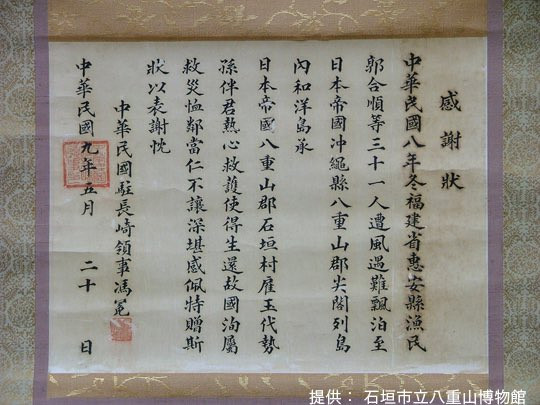 感謝狀
中華民國八年冬福建省惠安縣漁民
郭合順等三十一人遭風遇難飄泊至
日本帝國冲繩縣八重山郡尖閣列島
內和洋島承
日本帝國八重山郡石垣村雇玉代勢
孫伴君熱心救護使得生還故國洵屬
救災恤鄰當仁不讓深堪感佩特贈斯
狀以表謝忱
中華民國駐長崎領事馮冕
中華民國九年五月二十日
提供： 石垣市立八重山博物館